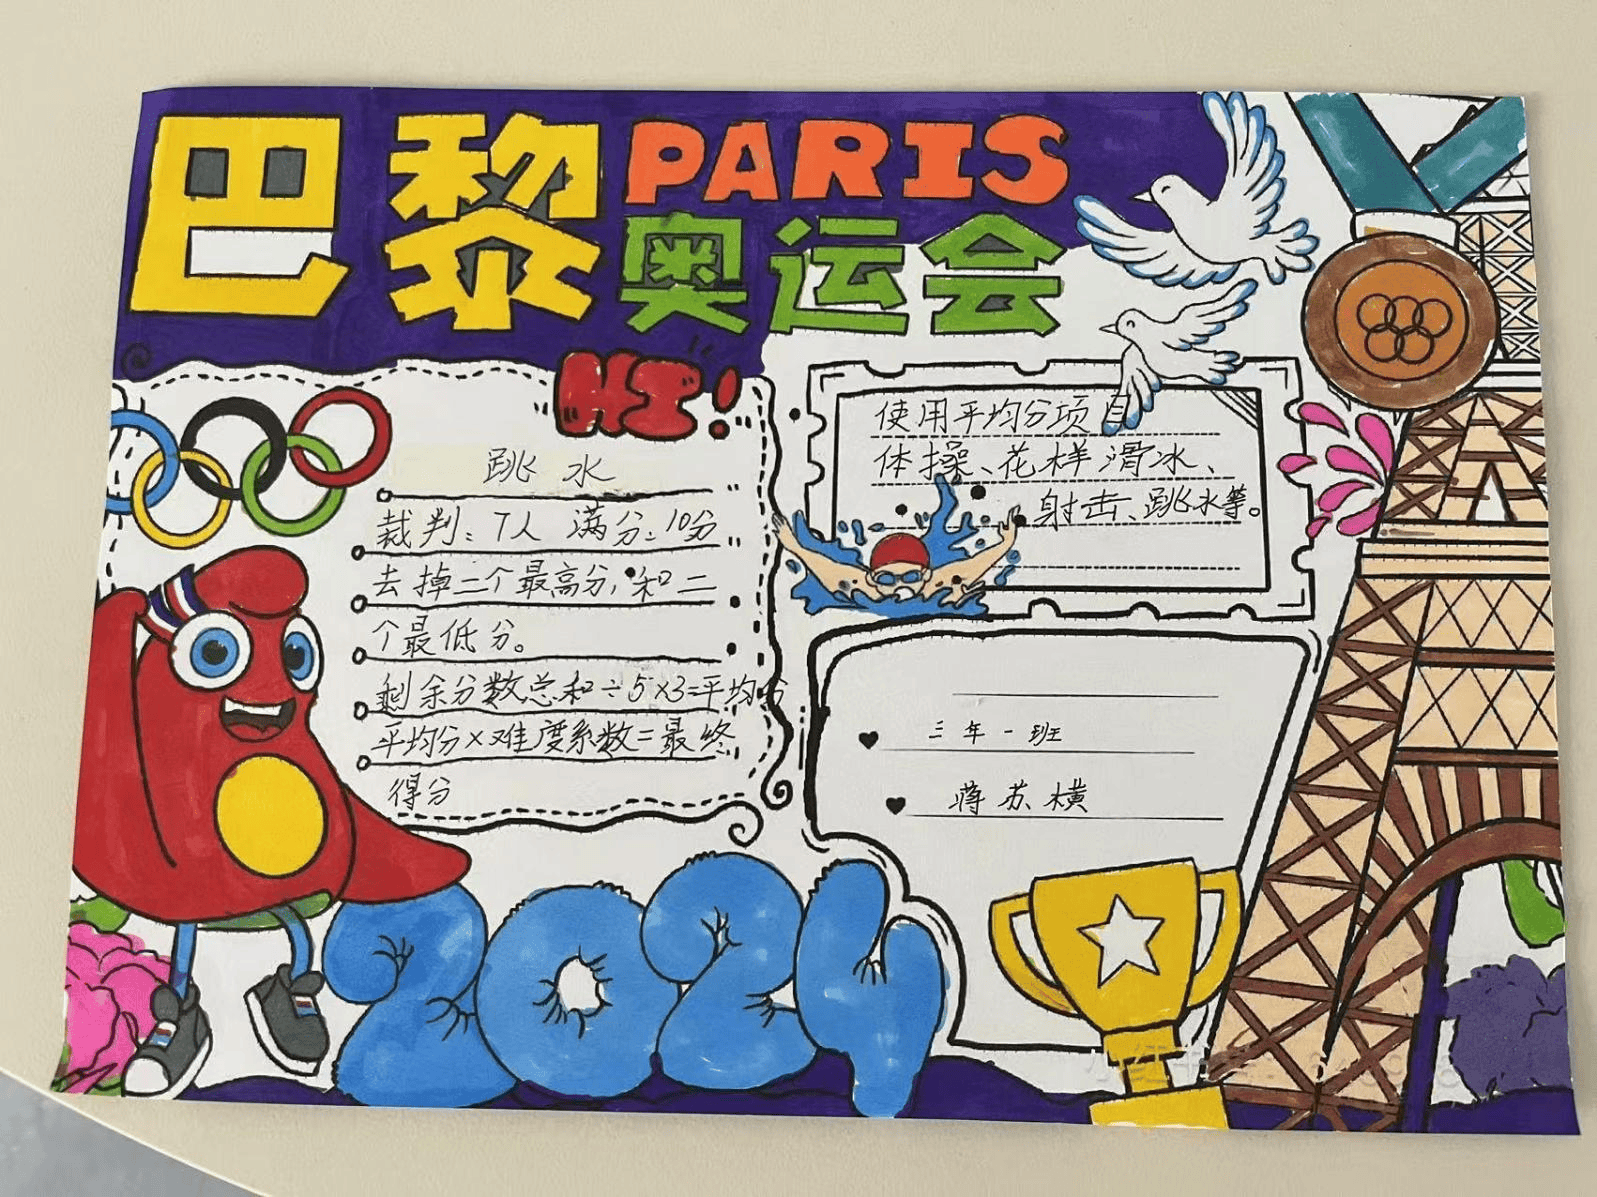 巴黎
PARIS
奥运会
HI!
跳水
裁判：7人 满分：10分
去掉二个最高分，和二
个最低分。
剩余分数总和÷5×3=平均分
平均分×难度系数=最终
得分
使用平均分项目
体操、花样滑冰、
射击、跳水等。
三年一班
蒋苏横
2024